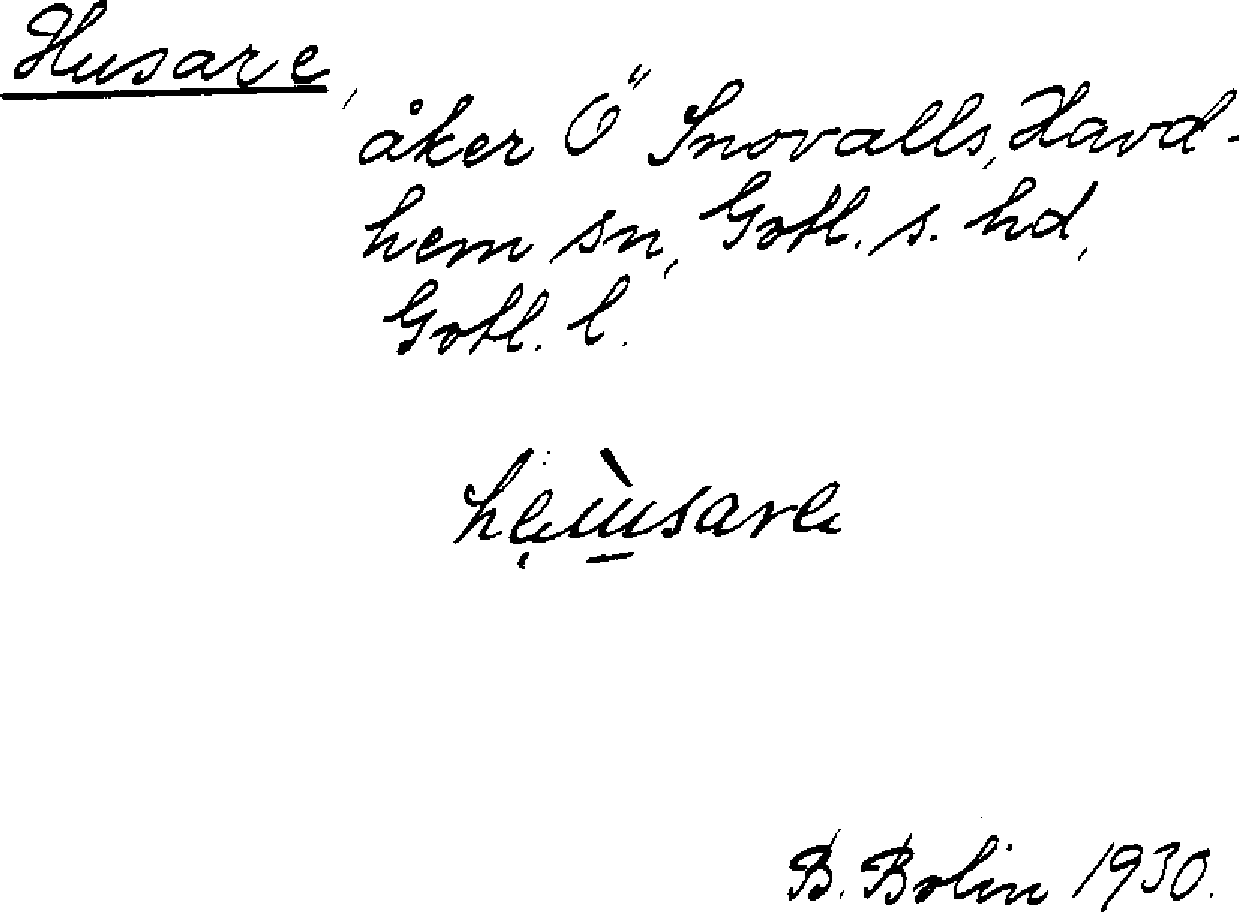 Husare,
åker Ö Snovalls, Havd-
hem sn, Gotl. s. hd,
Gotl. l.
B. Bolin 1930.